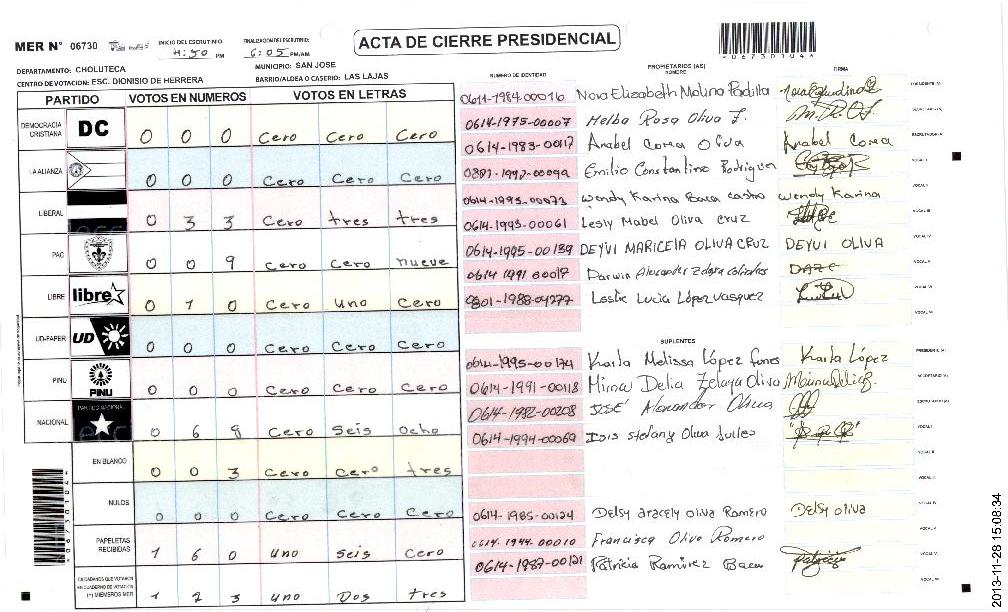 MER N° 06730
INICIO DEL ESCRUTINIO
4:50 PM
FINALIZACION DEL ESCRUTINIO
6:05 PM/AM
ACTA DE CIERRE PRESIDENCIAL
067301044
DEPARTAMENTO: CHOLUTECA
MUNICIPIO: SAN JOSE
CENTRO DE VOTACION: ESC. DIONISIO DE HERRERA
BARRIO/ALDEA O CASERIO: LAS LAJAS
PARTIDO VOTOS EN NUMEROS VOTOS EN LETRAS
DEMOCRACIA CRISTIANA DC 0 0 0 Cero Cero Cero
LA ALIANZA 0 0 0 Cero Cero Cero
LIBERAL 0 3 3 Cero tres tres
PAC 0 0 9 Cero Cero nueve
LIBRE libre 0 1 0 Cero uno Cero
UD-FAPER UD 0 0 0 Cero Cero Cero
PINU PINU 0 0 0 Cero Cero Cero
NACIONAL PARTIDO NACIONAL 0 6 8 Cero Seis Ocho
EN BLANCO 0 0 3 Cero Cero tres
NULOS 0 0 0 Cero Cero Cero
PAPELETAS RECIBIDAS 1 6 0 uno Seis Cero
CIUDADANOS QUE VOTARON EN CUADERNO DE VOTACION (*) MIEMBROS MER 1 2 3 uno Dos tres
NUMERO DE IDENTIDAD
PROPIETARIOS (AS)
NOMBRE
FIRMA
0611-1984-00016 Elizabeth Molina Padilla
0614-1975-00007 Rosa Oliva F.
0614-1983-00117 Anabel Corea Oliva Anabel Corea
Emilio Constantino Rodriguez
0614-1993-00073 Wendy Karina Baca Castro Wendy Karina
0614-1993-00061 Lesly Mabel Oliva Cruz
0614-1995-00139 DEYVI MARICELA OLIVA CRUZ DEYVI OLIVA
0614 1991 00017 Darwin Alexander
0801-1988-04277 Leslie Lucia López Vasquez
SUPLENTES
0614-1995-00174 Karla Melissa López funes Karla López
0614-1991-00118 Mirna Delia Zelaya Oliva
0614-1982-00208 JOSÉ Alexander Oliva
0614-1994-00069 Isis Stefany Oliva
0614-1985-00124 Delsy aracely oliva Romero Delsy oliva
0614-1944-00010 Francisca Oliva Romero
0614-1987-00121 Patricia Ramirez Baca
067301044
2013-11-28 15:08:34